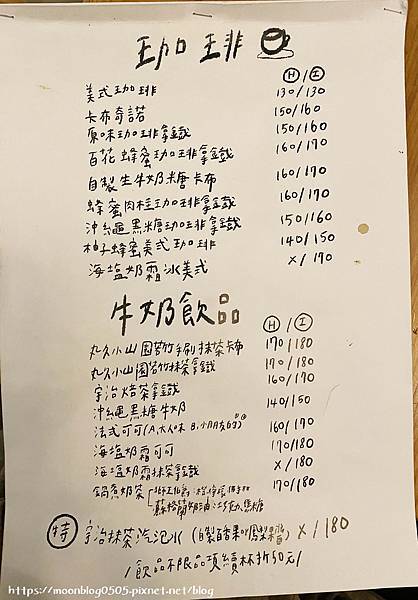 珈琲
Ⓗ/Ⓘ
美式珈琲 130/130
卡布奇諾 150/160
原味珈琲拿鐵 150/160
百花蜂蜜珈琲拿鐵 160/170
自製生牛奶糖卡布 160/170
蜂蜜肉桂珈琲拿鐵 160/170
沖繩黑糖珈琲拿鐵 150/160
柚子蜂蜜美式珈琲 140/150
海塩奶霜冰美式 x/170
牛奶飲品
Ⓗ/Ⓘ
丸久小山園若竹手刷抹茶卡布 170/180
丸久小山園若竹抹茶拿鐵 170/180
宇治焙茶拿鐵 160/170
沖繩黑糖牛奶 140/150
法式可可(A.大人味 B.小朋友的) 160/170
海塩奶霜可可 170/180
海塩奶霜抹茶拿鐵 x/180
鍋煮奶茶 170/180
蘇格蘭奶油 焦糖
特 宇治抹茶汽泡水(自製百香果or鳳梨醬) x/180
/飲品不限品項續杯折50元/
https://moonblog0505.pixnet.net/blog